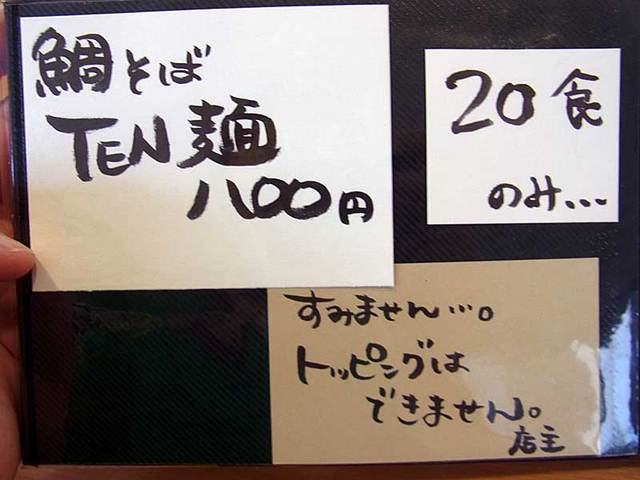 鯛そば
TEN麺
八〇〇円
20食
のみ...
すみません…。
トッピングは
できません。
店主